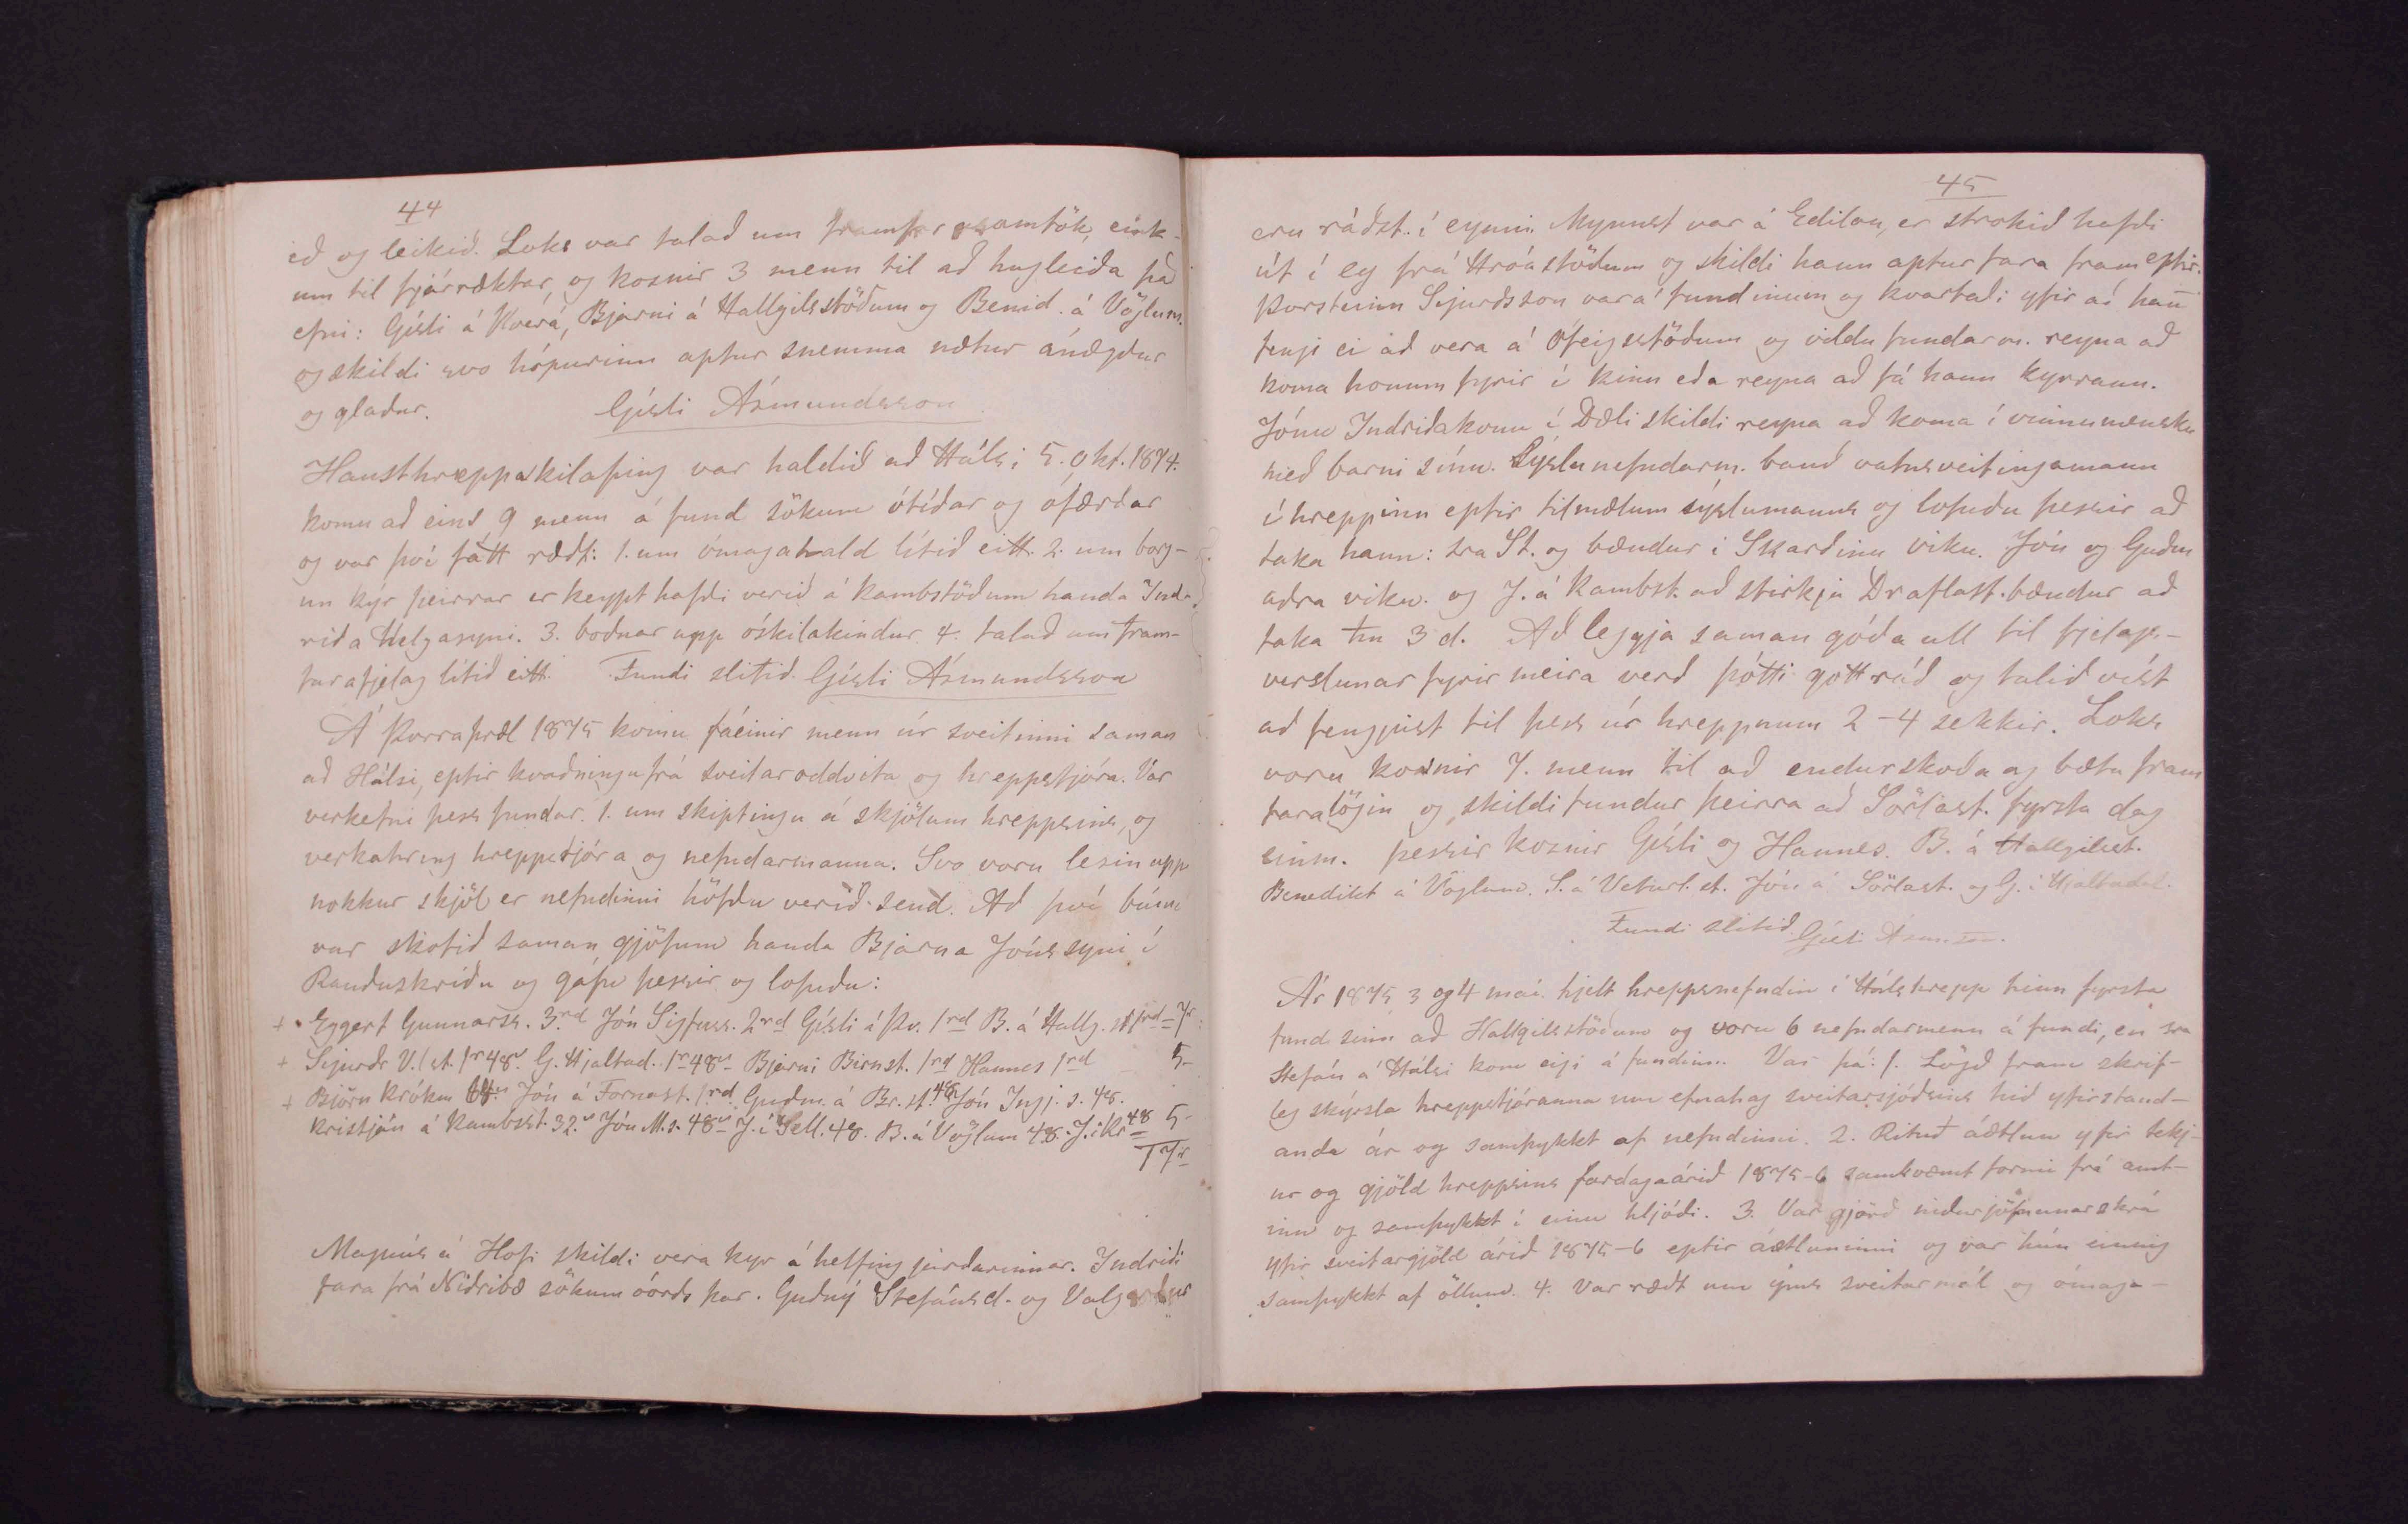 44
ið og leikið. Loks var talað um framfar samtök, eink-
um til fjárræktar, og kosnir 3 menn til að hugleiða það
efni: Gísli á Þverá, Bjarni á Hallgilsstöðum og Benid. á Vöglum.
og skildi svo hópurinn aptur snemma nætur ánægður
og glaður. Gísli Ásmundsson
Hausthreppaskilaþing var haldið að Hálsi 5. okt. 1874.
komu að eins 9 menn á fund sökum ótíðar og ófærðar
og var því fátt rædt: 1. um ómagahald lítið eitt. 2. um borg-
un kýr þeirrar er keypt hafði verið á Kambstöðum handa Ind-
riða Helgasyni. 3. boðnar upp óskilakindur. 4. talað um fram-
farafjelag lítið eitt. Fundi slitið. Gísli Ásmundsson
Á Þorraþræl 1875 komu fáeinir menn úr sveitinni saman
að Hálsi, eptir kvaðningu frá sveitaroddvita og hreppstjóra. Var
verkefni þess fundar. 1. um skiptingu á skjölum hreppsins, og
verkahring hreppstjóra og nefndarmanna. Svo voru lesin upp
nokkur skjöl er nefndinni höfðu verið send. Að því búnu
var skotið saman gjöfum handa Bjarna Jónssyni í
Rauðuskriðu og gáfu þessir og lofuðu:
+ Eggert Gunnarss. 3rd Jón Sigfuss. 2rd Gísli á Þv. 1rd B. á Hallg.st 1rd = 7r
+ Sigurðr V.l st. 1r 48s G. Hjaltad. 1r 48s Bjarni Birnst. 1rd Hannes 1rd 5-
+ Björn Krókm Jón á Fornast. 1rd. Guðm. á Br.st. 48 Jón Ingj.s. 48.
Kristján á Kambsst. 32s Jón M.s. 48s J. í Sell. 48. B. á Vöglum 48. J. í Kr 48 5-
17r
Magnús á Hofi skildi vera kyr á helfing jarðarinnar. Indriði
fara frá Niðribæ sökum óorðs þar. Guðný Stefánsd. og Valgerður
45
eru ráðst. í eynni. Mynnst var á Edilon, er strokið hafði
út í ey frá Hróastöðum og skildi hann aptur fara frameptir.
Þorsteinn Sigurðsson var á fundinum og kvartaði yfir að han̄
fengi ei að vera á Ófeigsstöðum og vildu fundarm. reyna að
koma honum fyrir í Kinn eða reyna að fá hann kyrrann.
Jónu Indriðakonu í Dæli skildi reyna að koma í vinnumensku
með barni sínu. Sýslunefndarm. bauð vatnsveitingamann
í hreppinn eptir tilmælum sýslumanns og lofuðu þessir að
taka hann: sra St. og bændur í Skarðinu viku. Jón og Guðm
aðra viku. og J. á Kambst. að stirkja Draflast. bændur að
taka hn 3 d. Að leggja saman góða ull til fjelags-
verslunar fyrir meira verð þótti gott ráð og talið víst
að fengjust til þess úr hreppnum 2-4 sekkir. Loks
voru kosnir 7. menn til að endurskoða og bæta fram
faralögin og skildi fundur þeirra að Sörlast. fyrsta dag
einm. þessir kosnir Gísli og Hannes. B. á Hallgilsst.
Benedikt á Vöglum. S. á Veturl.st. Jón á Sörlast. og G. í Hjaltadal.
Fundi slitið. Gísli Ásmss.
Ár 1875 3 og 4 maí. hjelt hreppsnefndin í Hálshrepp hinn fyrsta
fund sinn að Hallgilsstöðum og voru 6 nefndarmenn á fundi, en sra
Stefán á Hálsi kom eigi á fundinn. Var þá: 1. Lögð fram skrif-
leg skýrsla hreppstjóranna um efnahag sveitarsjóðsins hið yfirstand-
anda ár og samþykkt af nefndinni. 2. Rituð áætlun yfir tekj-
ur og gjöld hreppsins fardagaárið 1875-6 samkvæmt formi frá amt-
inu og samþykkt í einu hljóði. 3. Var gjörð niðurjöfnunarskrá
yfir sveitargjöld árið 1875-6 eptir áætluninni og var hún einnig
samþykkt af öllum. 4. Var rædt um ýms sveitarmál og ómaga-